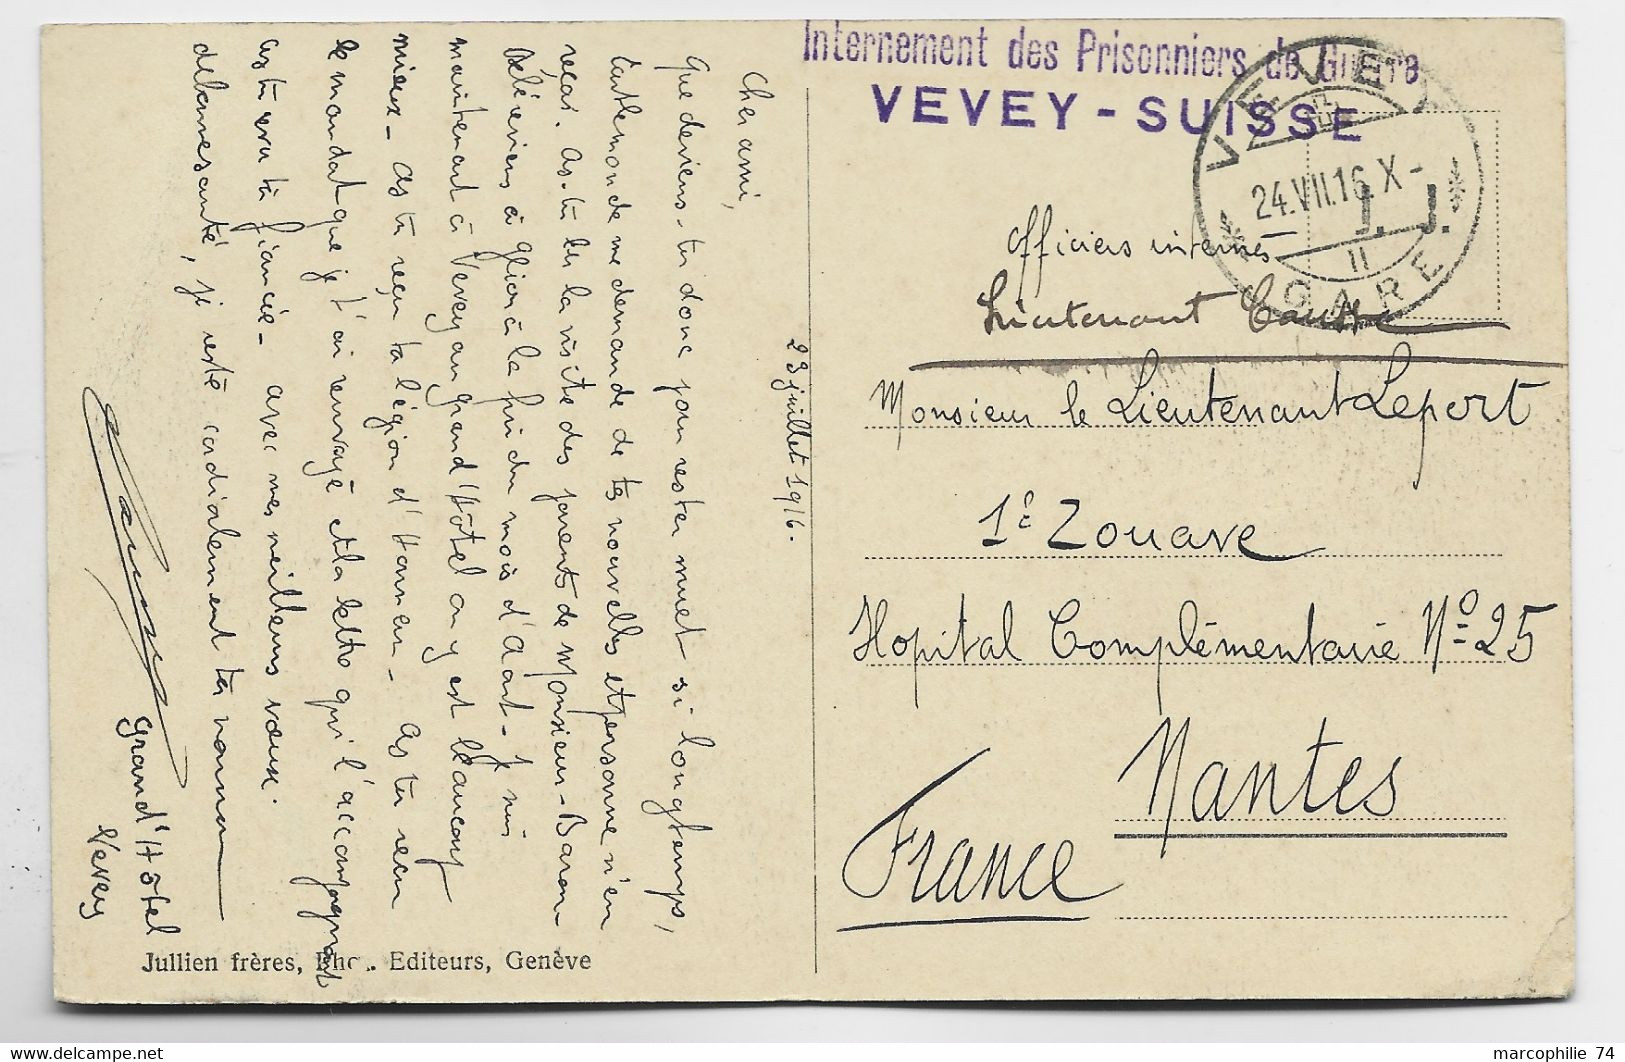 Internement des Prisonniers de Guerre
VEVEY - SUISSE
VEVEY
24.VII.16.X-
II
GARE
J. J.
Officiers internés
Lieutenant Causse
Monsieur le Lieutenant Lepert
1e Zouave
Hopital Complémentaire No 25
Nantes
France
23 juillet 1916.
Cher ami,
Que deviens-tu donc pour rester muet si longtemps,
tout le monde me demande de tes nouvelles et personne n'en
reçoit. As-tu eu la visite des parents de Monsieur Baron
à Glion à la fin du mois d'Août - Je suis
maintenant à Vevey au grand'Hôtel on y est beaucoup
mieux - As tu reçu ta légion d'Honneur - As tu reçu
le mandat que je t'ai renvoyé et la lettre qui l'accompagnait
as tu vu ta fiancée - avec mes meilleurs vœux
de bonne santé, je reste cordialement ton
Grand'Hôtel
Vevey
Jullien frères, Pho. Editeurs, Genève
marcophilie 74